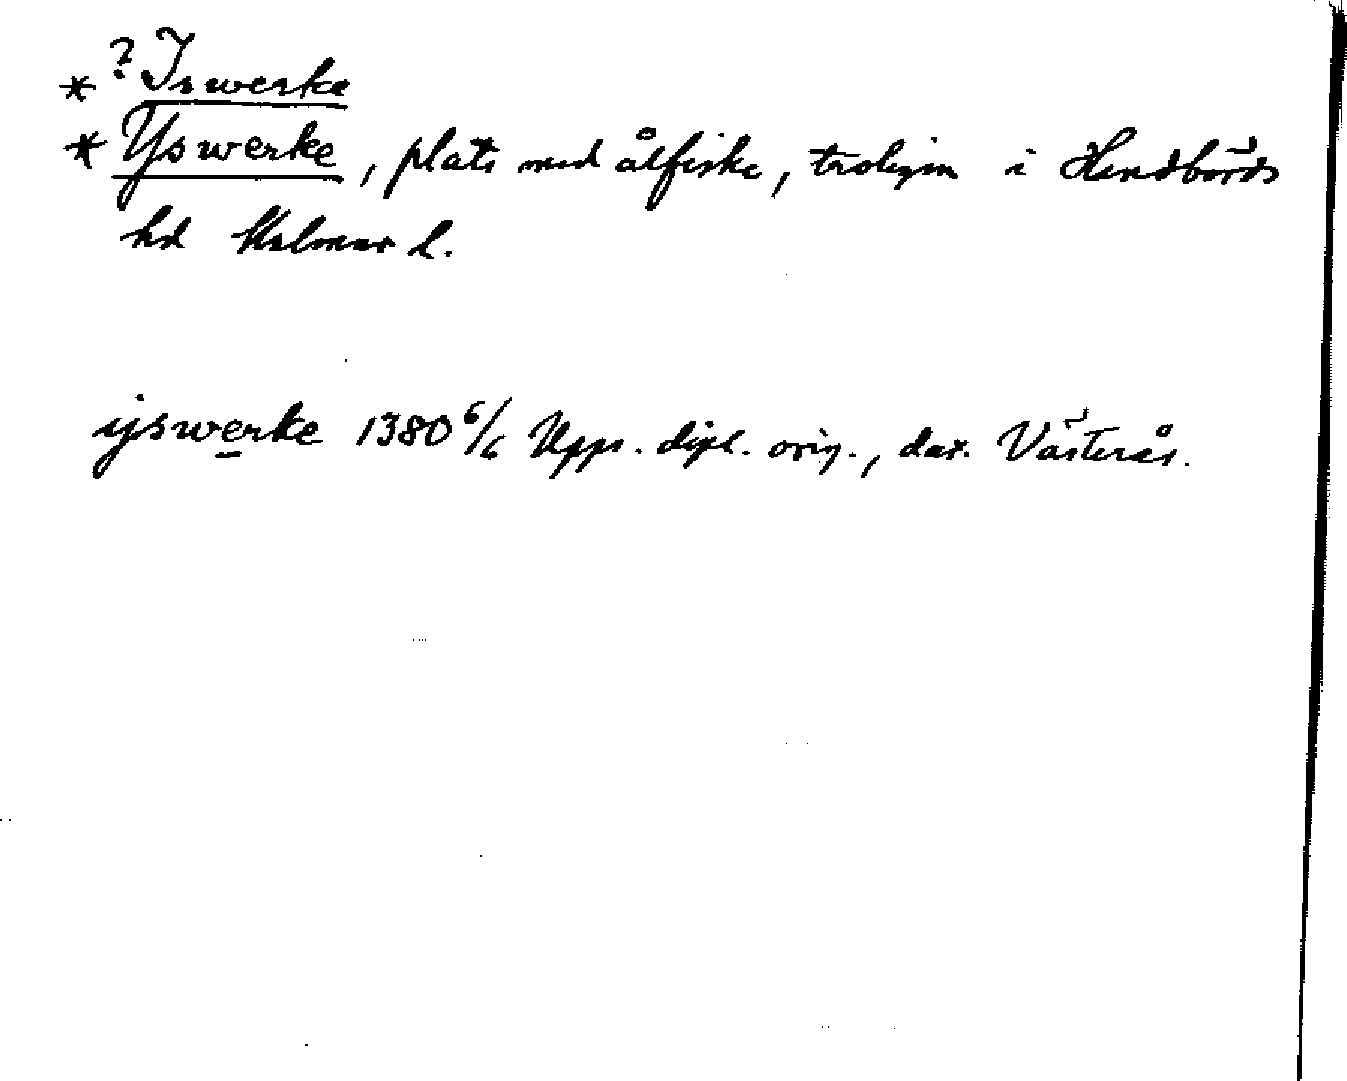 * ? Iswerke
* Yswerke, plats med ålfiske, troligen i Handbörds
hd Kalmar l.
ijswerke 1380 6/6 Upps. dipl. orig., dat. Västerås.